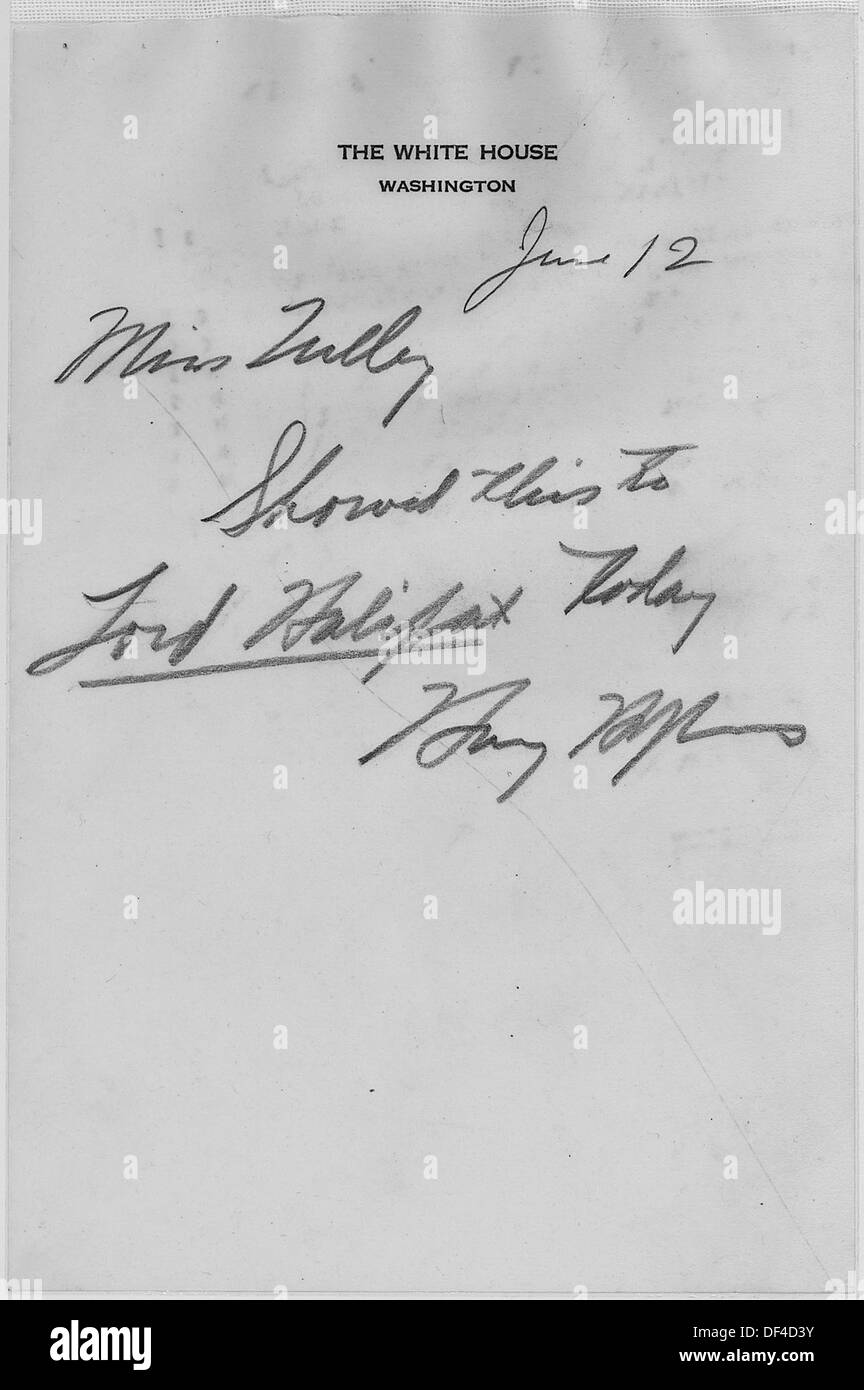 THE WHITE HOUSE
WASHINGTON
June 12
Miss Tulley
Showed this to
Lord Halifax today
Harry Hopkins
a alamy
alamy
Image ID: DF4D3Y
www.alamy.com